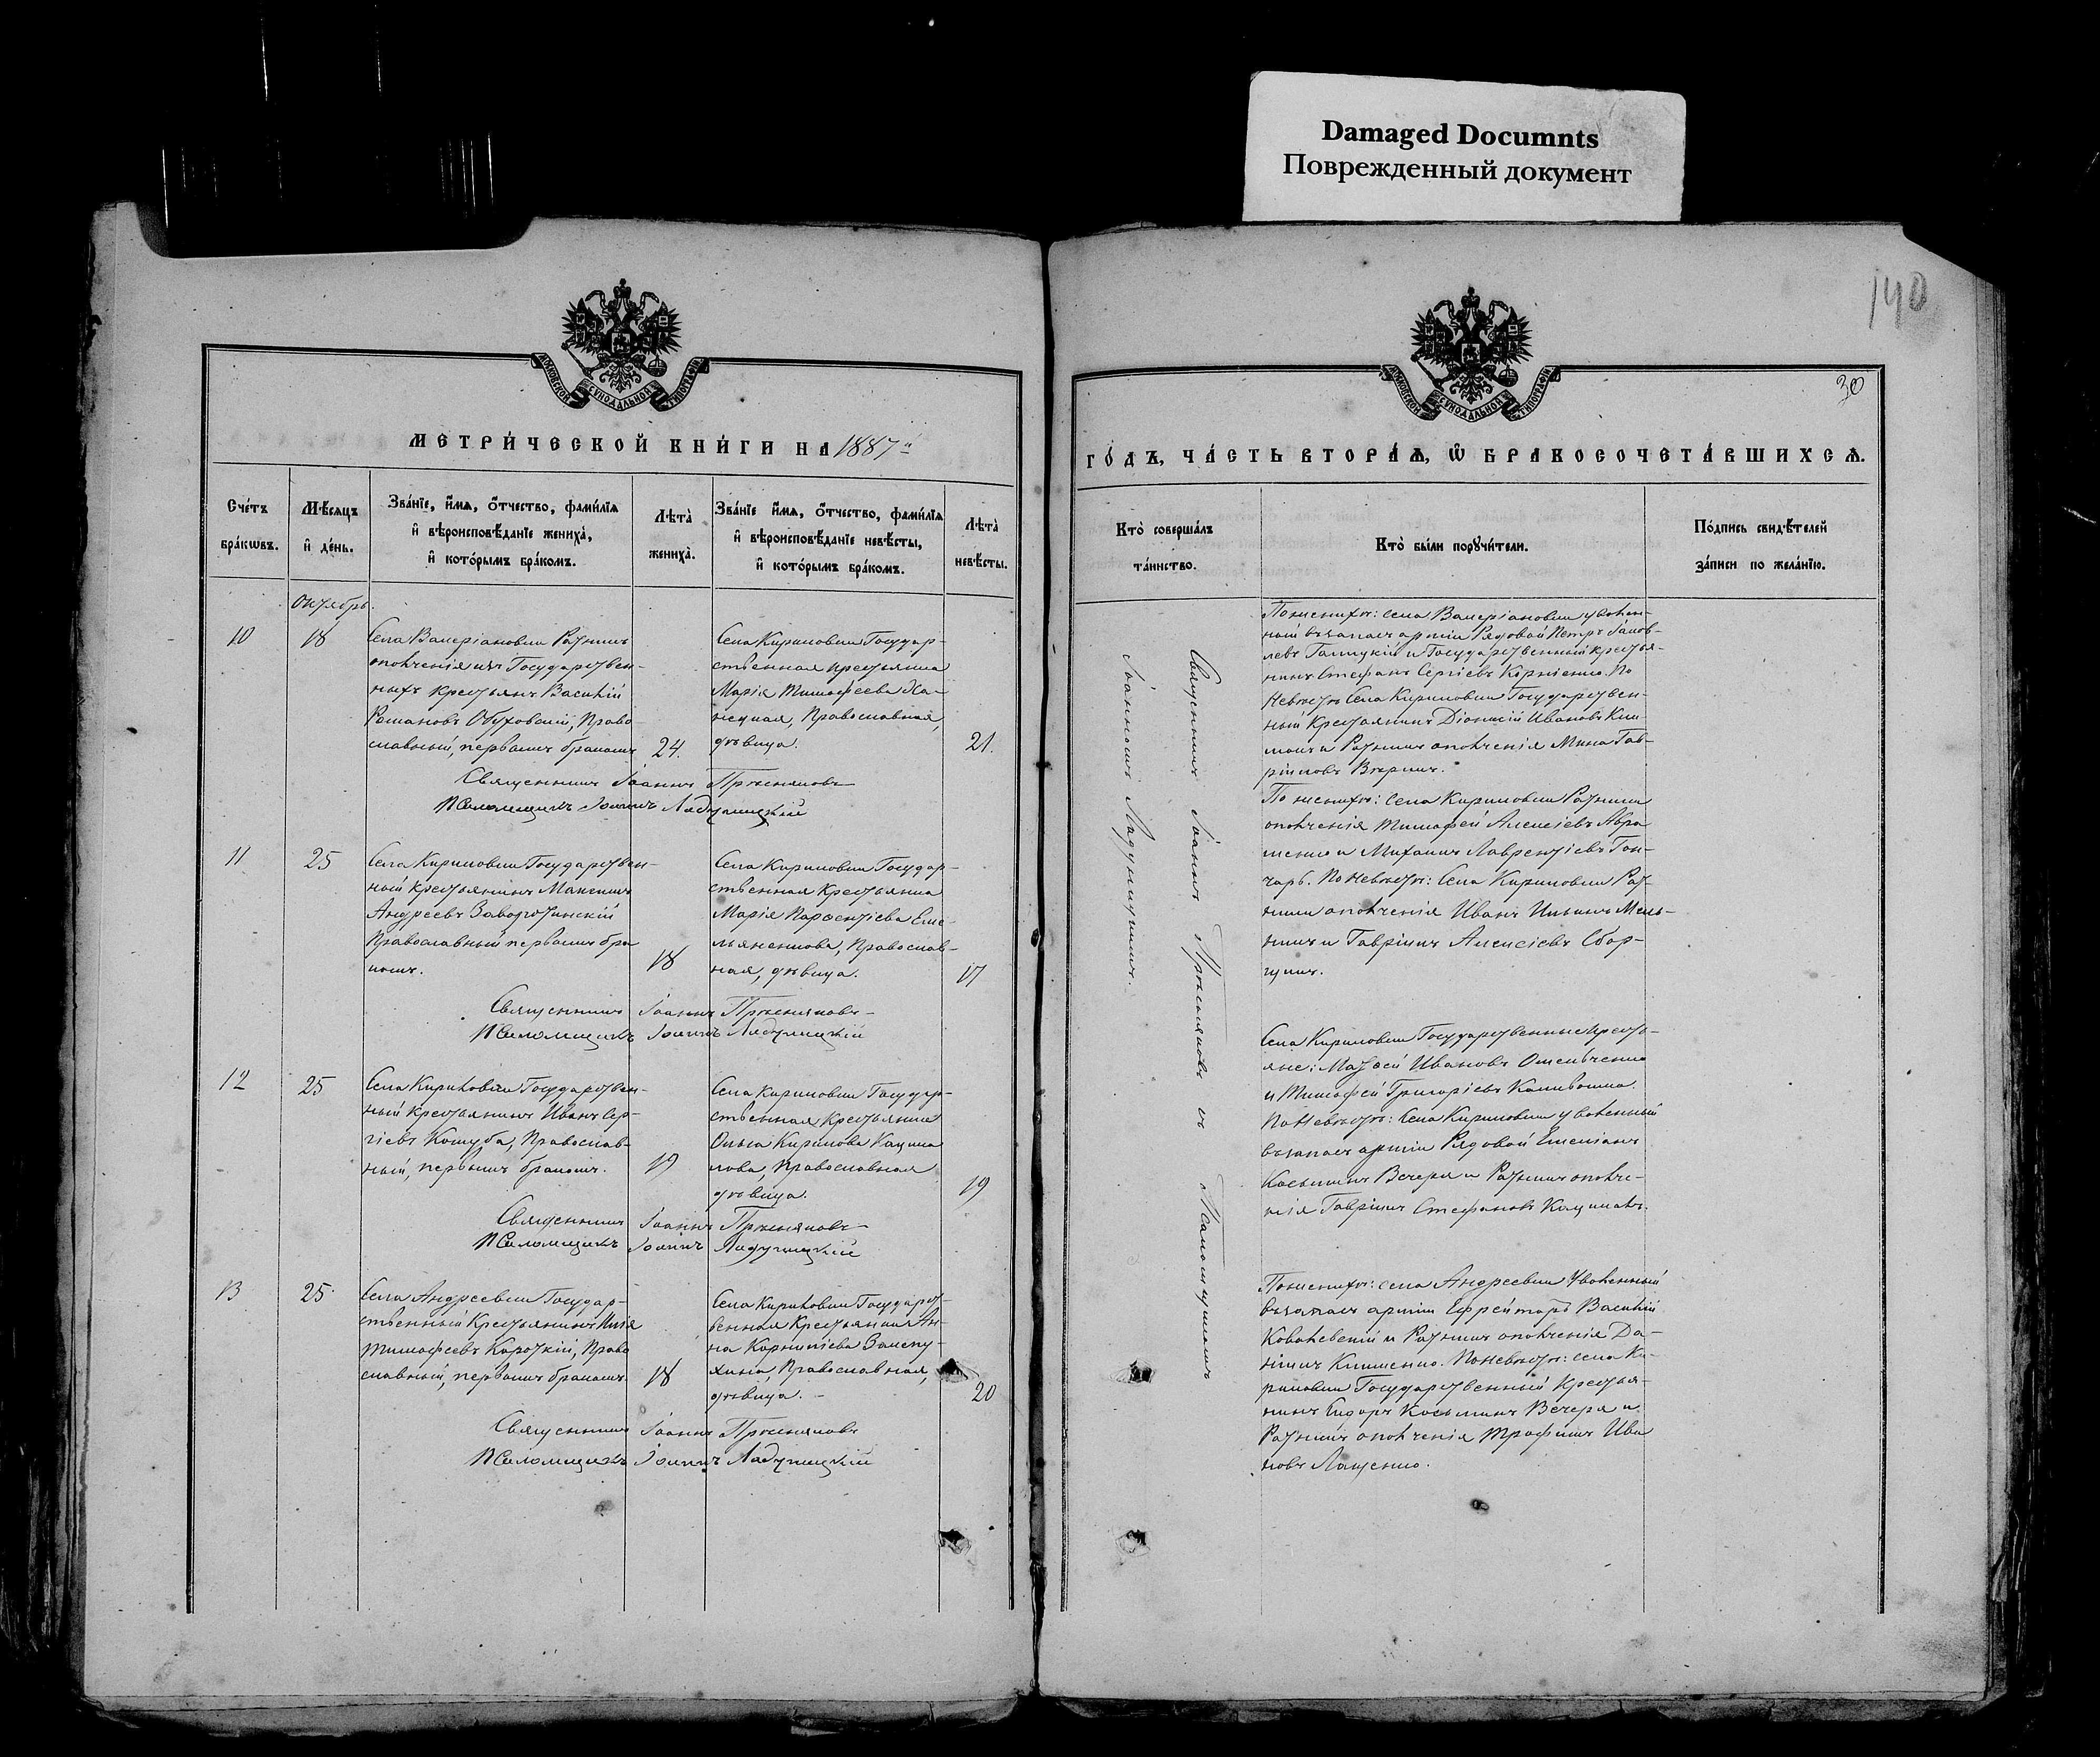 Damaged Documnts
Поврежденный документ
140
МОСКОВСКОЙ СѴНОДАЛЬНОЙ ТИПОГРАФІИ
МЕТРИ́ЧЕСКОЙ КНИ́ГИ НА 1887й
Сче́тъ бра́кѡвъ.
Мѣ́сяцъ и҆ де́нь.
Зва́нїе, и҆́мѧ, ѻ҆́тчество, фами́лїѧ
и҆ вѣроисповѣ́данїе жениха̀,
и҆ кото́рымъ бра́комъ.
Лѣ́та̀ жениха̀.
Зва́нїе и҆́мѧ, ѻ҆́тчество, фами́лїѧ
и҆ вѣроисповѣ́данїе невѣ́сты,
и҆ кото́рымъ бра́комъ.
Лѣ́та̀ невѣ́сты.
Октябрь.
10
18
Села Валеріановки Ратникъ
ополченія изъ Государствен-
ныхъ крестьянъ Василій
Романовъ Обуховскій, Право
славный, первымъ бракомъ
24.
Села Кириловки Государ-
ственная крестьянка
Марія Тимофеева
Православная,
дѣвица.
21.
Священникъ Іоаннъ
Псаломщикъ Іоаннъ
11
25
Села Кириловки Государствен-
ный крестьянинъ Максимъ
Андреевъ Заворотинскій
Православный первымъ бра
комъ.
18
Села Кириловки Государ-
ственная крестьянка
Марія Парфентіева Еме-
льяненкова, Православ-
ная, дѣвица.
17
Священникъ Іоаннъ
Псаломщикъ Іоаннъ
12
25
Села Кириловки Государствен-
ный крестьянинъ Иванъ Сер-
гіевъ Кошуба, Православ-
ный, первымъ бракомъ.
19
Села Кириловки Государ-
ственная крестьянка
Ольга Кирилова Кацика
лова, Православная
дѣвица.
19
Священникъ Іоаннъ
Псаломщикъ Іоаннъ
13
25
Села Андреевки Государ-
ственный крестьянинъ Илія
Тимофеевъ Короткій, Право
славный, первымъ бракомъ.
18
Села Кириловки Государст-
венная крестьянка Ан-
на Корниліева
Православная,
дѣвица.
20
Священникъ Іоаннъ
Псаломщикъ Іоаннъ
МОСКОВСКОЙ СѴНОДАЛЬНОЙ ТИПОГРАФІИ
30
ГО́ДЪ, ЧА́СТЬ ВТОРА́Ѧ, Ѽ БРАКОСОЧЕТА́ВШИХСѦ.
Кто̀ соверша́лъ
та́инство.
Кто̀ бы́ли порꙋчи́тели.
По́дпись свидѣ́телей
за́писи по жела́нїю.
Священникъ Іоаннъ съ Псаломщикомъ
Іоанномъ
По женихѣ: села Валеріановки уволен-
ный въ запасъ арміи Рядовой Петръ Іаков-
левъ Галицкій и Государственный крестья-
нинъ Стефанъ Сергіевъ Корніенко. По
невѣстѣ села Кириловки Государствен-
ный крестьянинъ Діонисій Ивановъ
и Ратникъ ополченія Мина Гав-
риловъ
По женихѣ: села Кириловки Ратники
ополченія Тимофей Алексіевъ Абра
менко и Михаилъ Лаврентіевъ Гон-
чаръ. По невѣстѣ: села Кириловки Рат-
ники ополченія Иванъ Ильинъ Мель-
никъ и Гавріилъ Алексіевъ
Села Кириловки Государственные кресть-
яне: Матѳей Ивановъ Омельченко
и Тимофей Григоріевъ
По невѣстѣ: села Кириловки уволенный
въ запасъ арміи Рядовой Емеліанъ
Косьминъ Вечеря и Ратникъ ополче-
нія Гавріилъ Стефановъ
По женихѣ: села Андреевки уволенный
въ запасъ арміи Ефрейторъ Василій
Ковалевскій и Ратникъ ополченія Да-
ніилъ Клименко. По невѣстѣ: села Ки-
риловки Государственный крестья-
нинъ Сидоръ Косьминъ Вечеря и
Ратникъ ополченія Трофимъ Ива
новъ Лащенко.